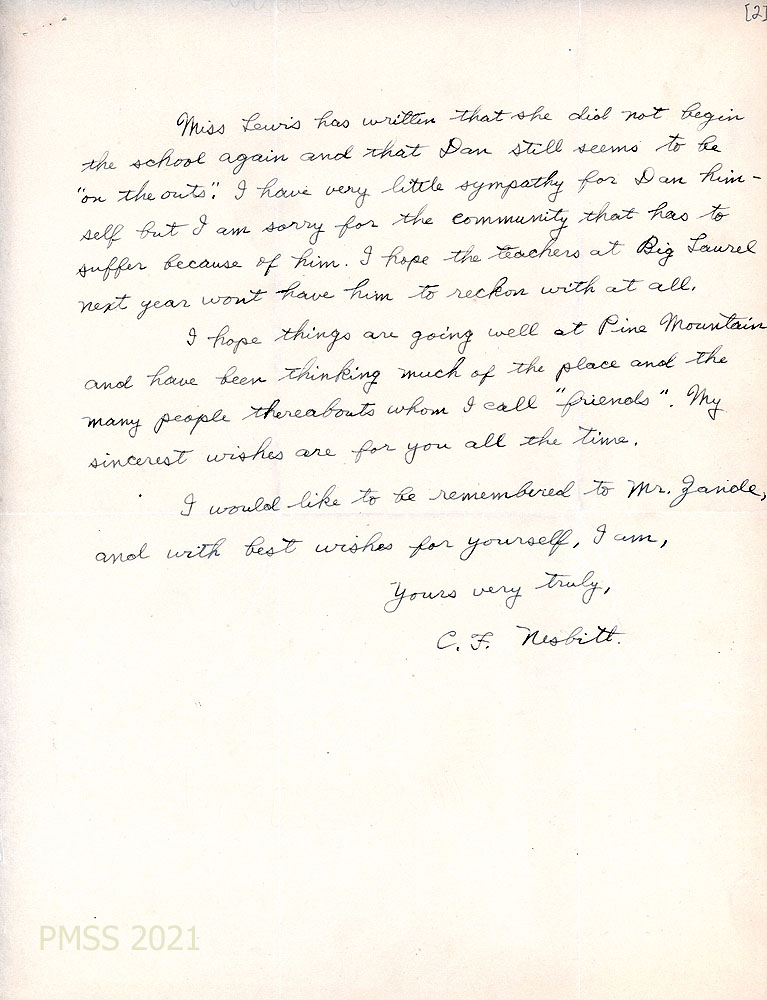 [2]
Miss Lewis has written that she did not begin
the school again and that Dan still seems to be
"on the outs". I have very little sympathy for Dan him-
self but I am sorry for the community that has to
suffer because of him. I hope the teachers at Big Laurel
next year wont have him to reckon with at all.
I hope things are going well at Pine Mountain
and have been thinking much of the place and the
many people thereabouts whom I call "friends". My
sincerest wishes are for you all the time.
I would like to be remembered to Mr. Zande,
and with best wishes for yourself, I am,
Yours very truly,
C. F. Nesbitt.
PMSS 2021